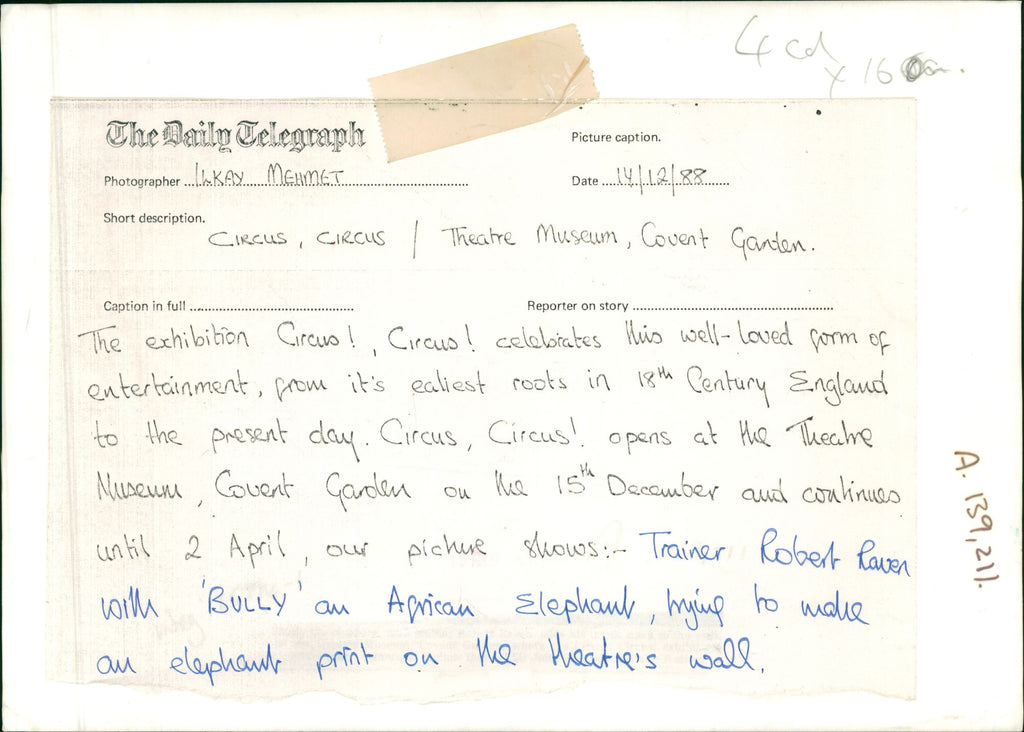 4 cd
x 16
The Daily Telegraph
Picture caption.
Photographer ILKAY MEHMET
Date 14/12/88
Short description.
CIRCUS, CIRCUS / Theatre Museum, Covent Garden.
Caption in full
Reporter on story
The exhibition Circus!, Circus! celebrates this well-loved form of
entertainment, from it's ealiest roots in 18th Century England
to the present day. Circus, Circus! opens at the Theatre
Museum, Covent Garden on the 15th December and continues
until 2 April, our picture shows:- Trainer Robert Raven
with 'BULLY' an African Elephant, trying to make
an elephant print on the theatre's wall.
A. 139,211.